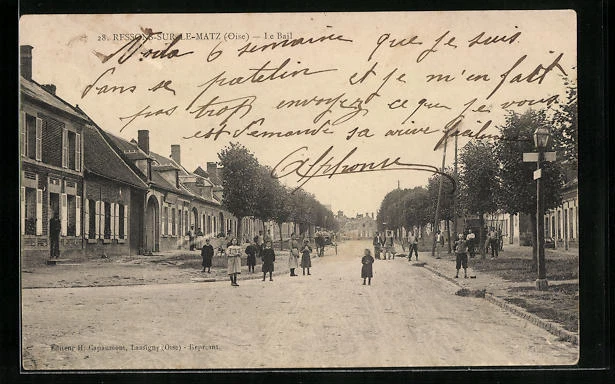 28. RESSONS-SUR-LE-MATZ (Oise) — Le Bail
Voila 6 semaine que je suis
dans se patelin et je m'en fait
pas trop envoyez ce que je vous
est demandé sa arive
Alphonse
Editeur H. Lassigny (Oise) - Reprod.